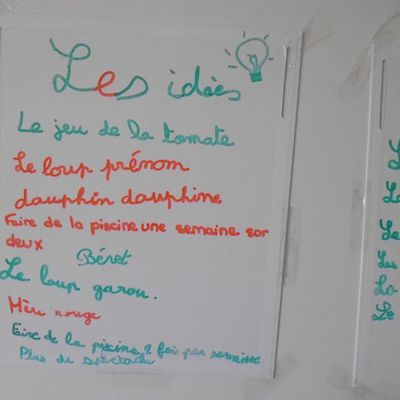 Les idées
Le jeu de la tomate
Le loup prénom
dauphin dauphine
Faire de la piscine une semaine sor
deux
Béret
Le loup garou.
Mère rouge
Faire de la piscine 2 fois par semaine
Plus de spectacle
L
Le
Le
Les
La
Le